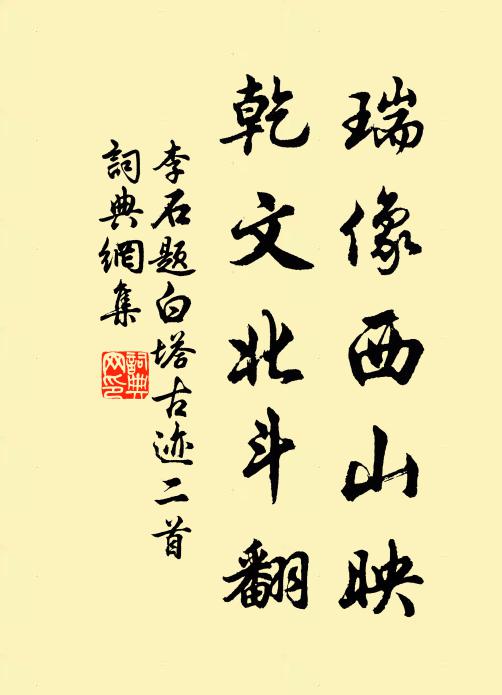 瑞像西山映
乾文北斗翻
李石题白塔古迹二首
詞典網集
詞典网印